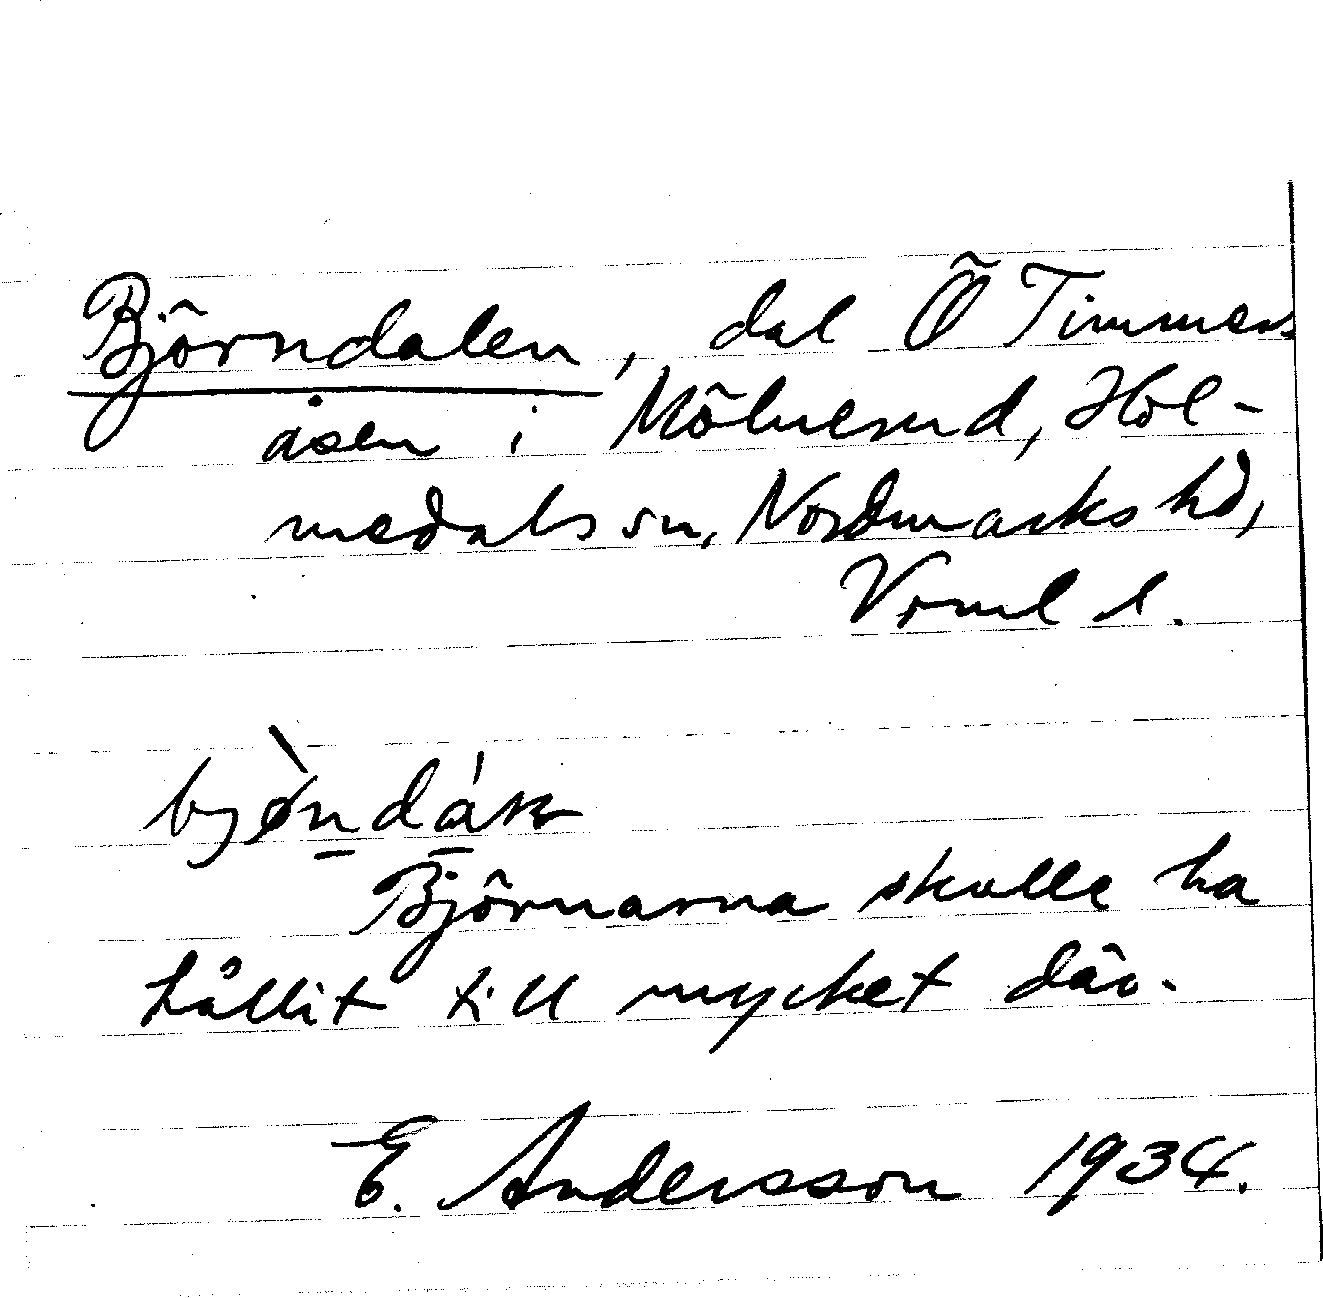 Björndalen, dal Ö Timmer-
åsen i Mölnerud, Hol-
medals sn, Nordmarks hd,
Vrml l.
Björnarna skulle ha
hållit till mycket där.
E. Andersson 1934.